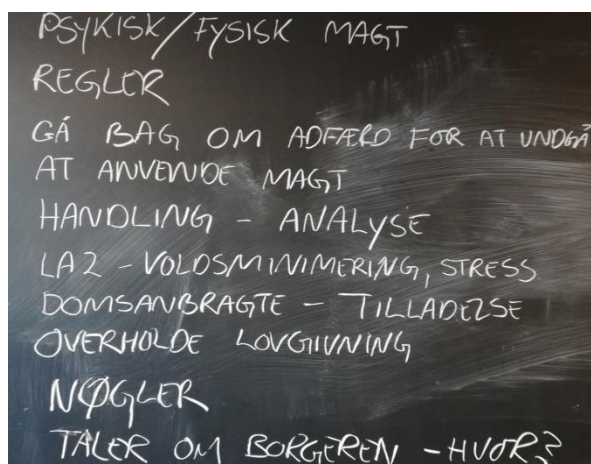 PSYKISK/FYSISK MAGT
REGLER
GÅ BAG OM ADFÆRD FOR AT UNDGÅ
AT ANVENDE MAGT
HANDLING - ANALYSE
LA2 - VOLDSMINIMERING, STRESS
DOMSANBRAGTE - TILLADELSE
OVERHOLDE LOVGIVNING
NØGLER
TALER OM BORGEREN - HVOR?